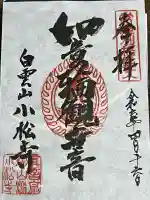 奉拝
令和 四月十六日
如意輪観世音
白雲山小松寺